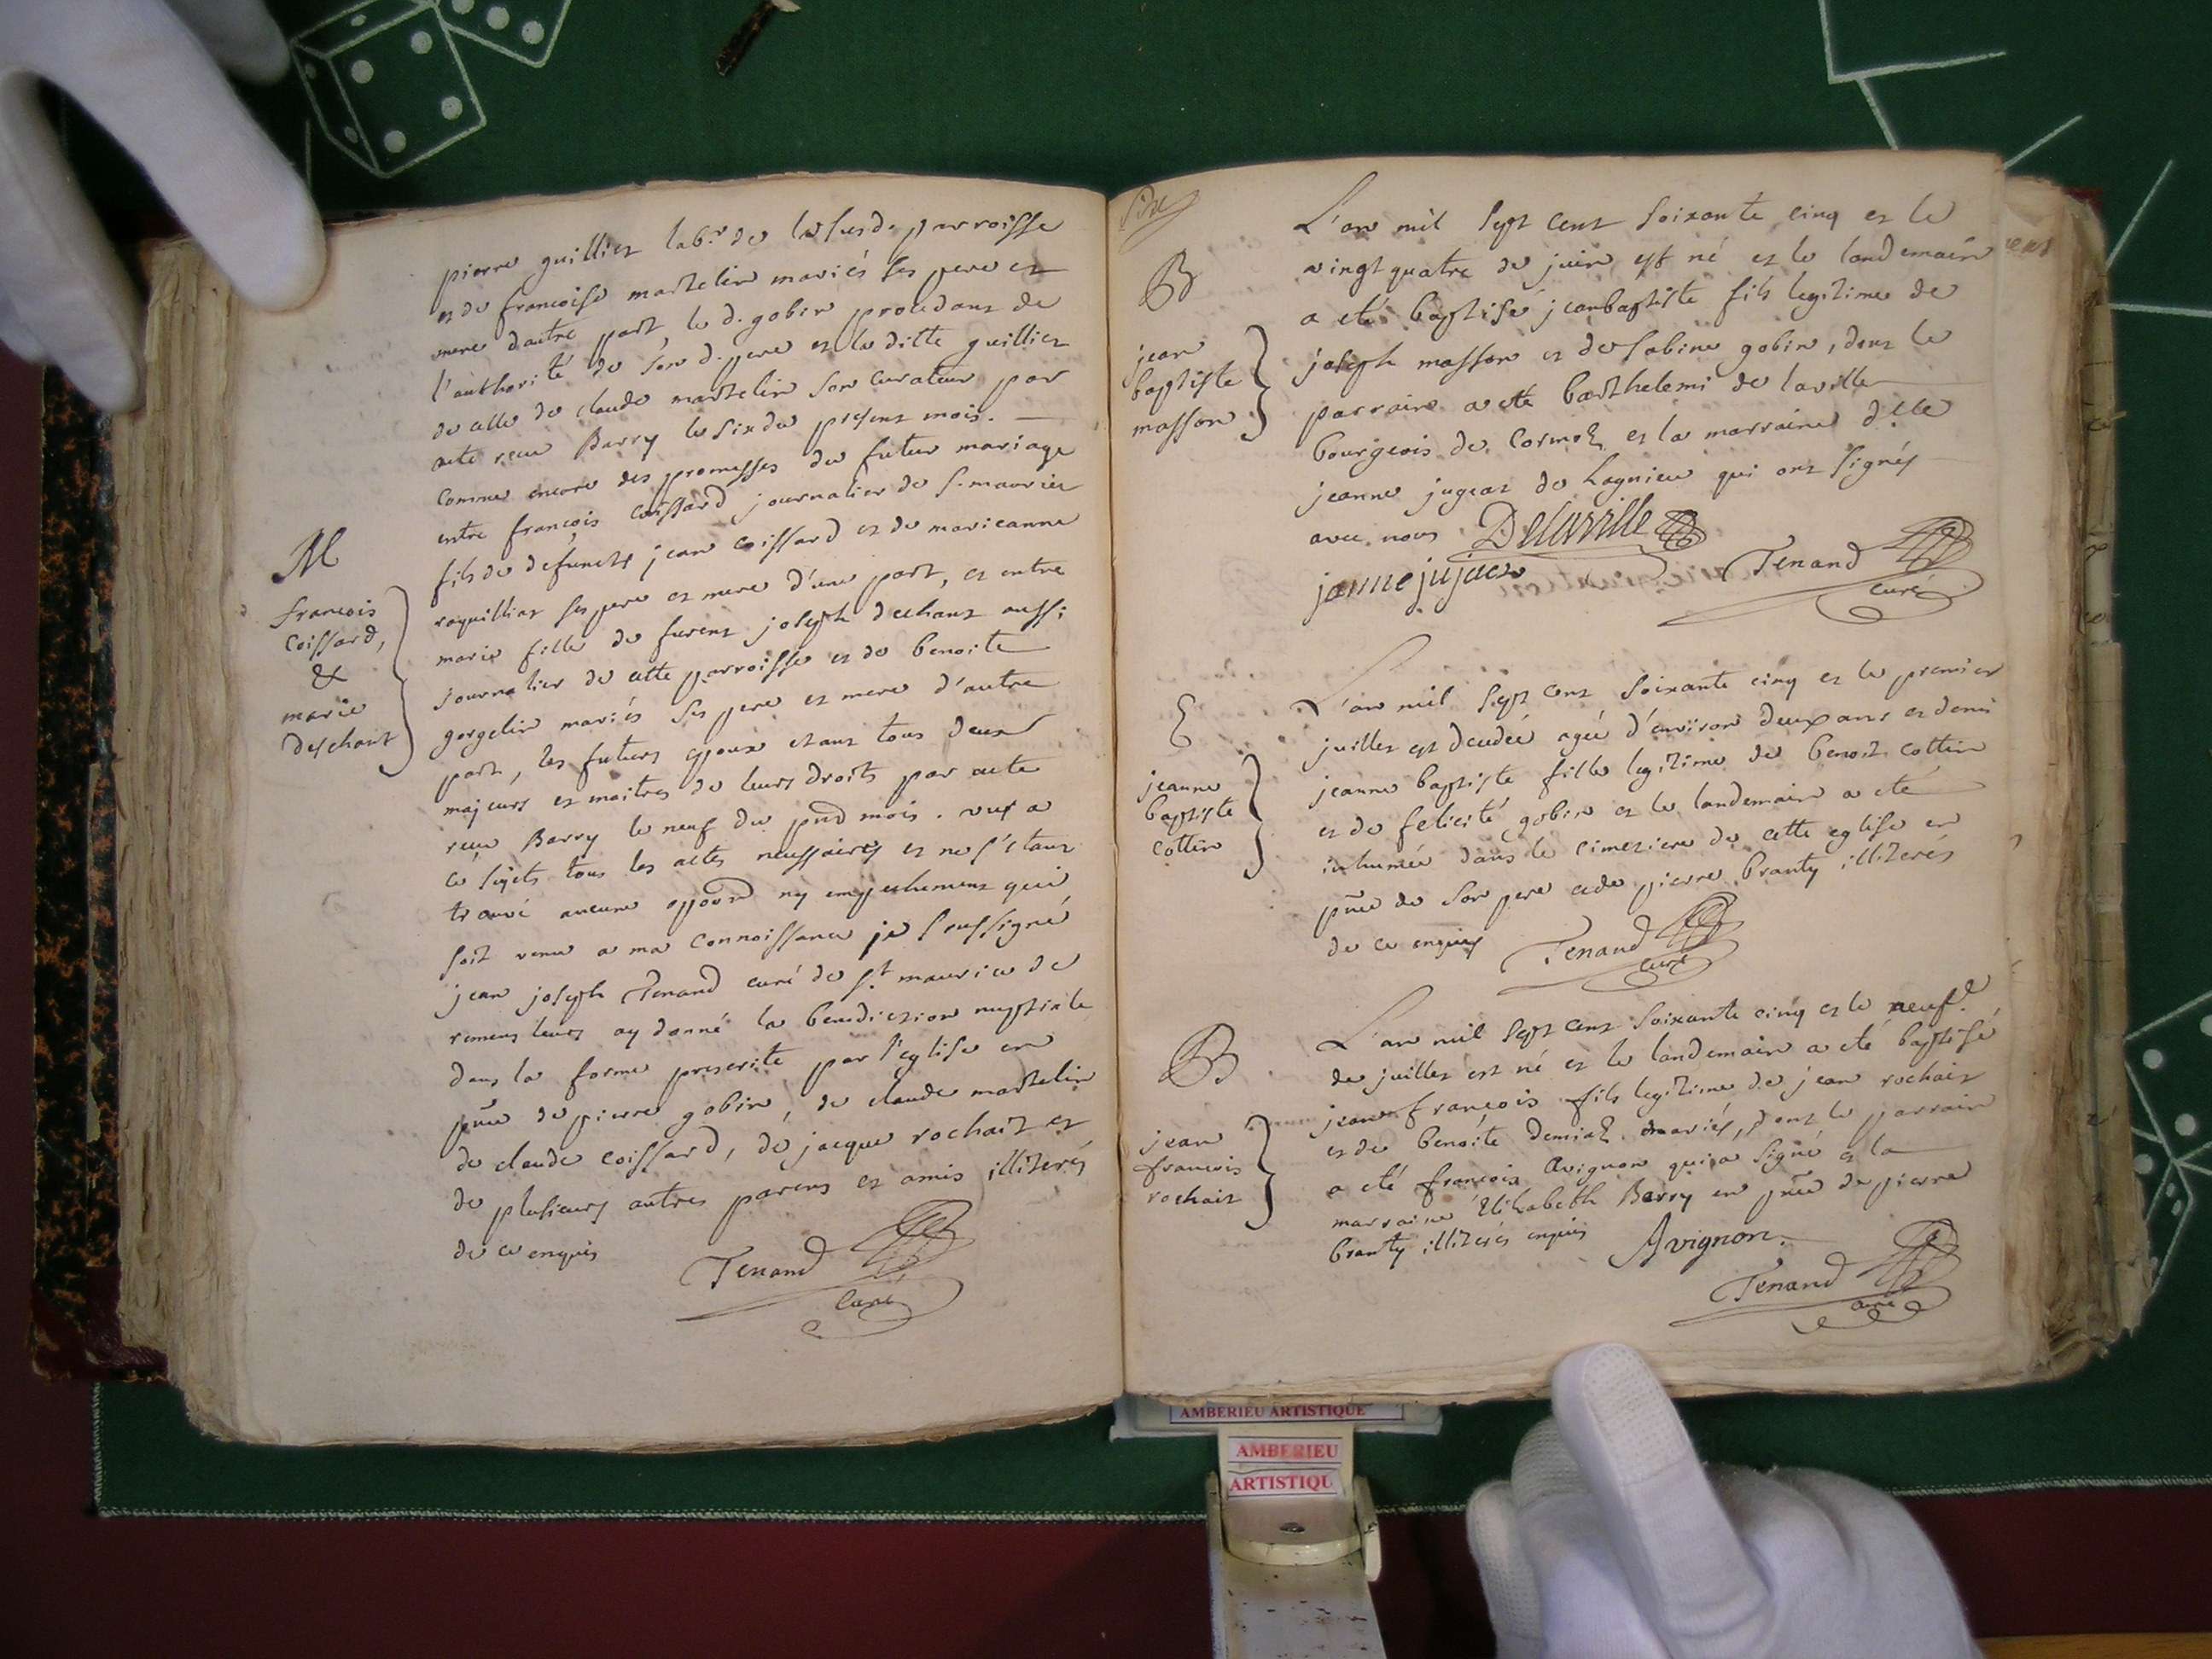 pierre guillier lab.r de la susd. parroisse
et de francoise martelin mariés ses pere et
mere dautre part le d. gobin procedant de
l'authorité de son d. pere et la ditte guillier
de celle de claude martelin son curateur par
acte recu Barry le six du present mois.
comme encore des promesses du futur mariage
entre françois coissard journalier de S. maurice
fils de defuncts jean coissard et de marieanne
roquilliat ses pere et mere d'une part, et entre
marie fille de furent joseph dechant aussi
journalier de cette parroisse et de benoite
gorgelin mariés ses pere et mere d'autre
part, les futurs epoux etant tous deux
majeurs et maitres de leurs droits par acte
recu Barry le neuf du pnd mois. vux a
ce sujets tous les actes necessaires et ne s'etant
trouvé aucune oppoon ny empechement qui
soit venu a ma connoissance je soussigné
jean joseph Tenand curé de St maurice de
remens leurs ay donné la benediction nuptiale
dans la forme prescrite par l'eglise en
pnce de pierre gobin, de claude martelin
de claude coissard, de jacque rochait et
de plusieurs autres parens et amis illiterés
de ce enquis
Tenand
curé
M
francois
Coissard,
&
marie
deschant
L'an mil sept cent soixante cinq et le
vingt quatre de juin est né et le landemain
a eté baptisé jeanbaptiste fils legitime de
joseph masson et de sabine gobin, dont le
parrain a eté barthelemi de laville
bourgeois de Cormoz et la marraine d.lle
jeanne jugeat de Lagnieu qui ont signés
avec nous Delaville
janne jujact Tenand
curé
B
jean
baptiste
masson
L'an mil sept cent soixante cinq et le premier
juillet est decedée agée d'environ deux ans et demi
jeanne baptiste fille legitime de benoit cottin
et de felicité gobin et le landemain a eté
inhumée dans le cimetiere de cette eglise en
pnce de son pere et de pierre branty illiterés
de ce enquis Tenand
curé
E
jeanne
baptiste
Cottin
L'an mil sept cent soixante cinq et le neuf.e
de juillet est né et le landemain a eté baptisé
jean francois fils legitime de jean rochait
et de benoite demiaz mariés, dont le parrain
a eté francois Avignon qui a signé et la
marraine Elizabeth Barry en pnce de pierre
branty illiterés enquis Avignon.
Tenand
curé
B
jean
francois
rochait
AMBERIEU ARTISTIQUE
AMBERIEU
ARTISTIQU